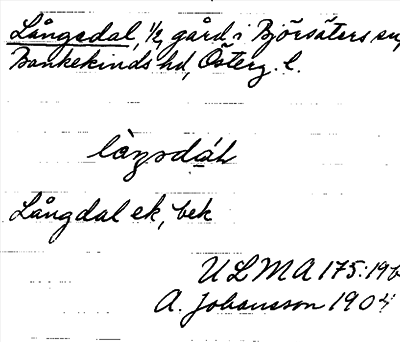 Långsdal, 1/2 gård i Björsäters sn,
Bankekinds hd, Österg. l.
Långdal ek, bek
ULMA 175:19
A. Johansson 1904